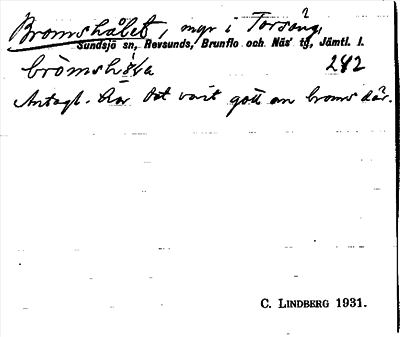 Bromshålet, myr i Torsång,
Sundsjö sn, Revsunds, Brunflo och Näs' tg, Jämtl. l.
242
Antagl. har det varit gott om broms där.
C. LINDBERG 1931.